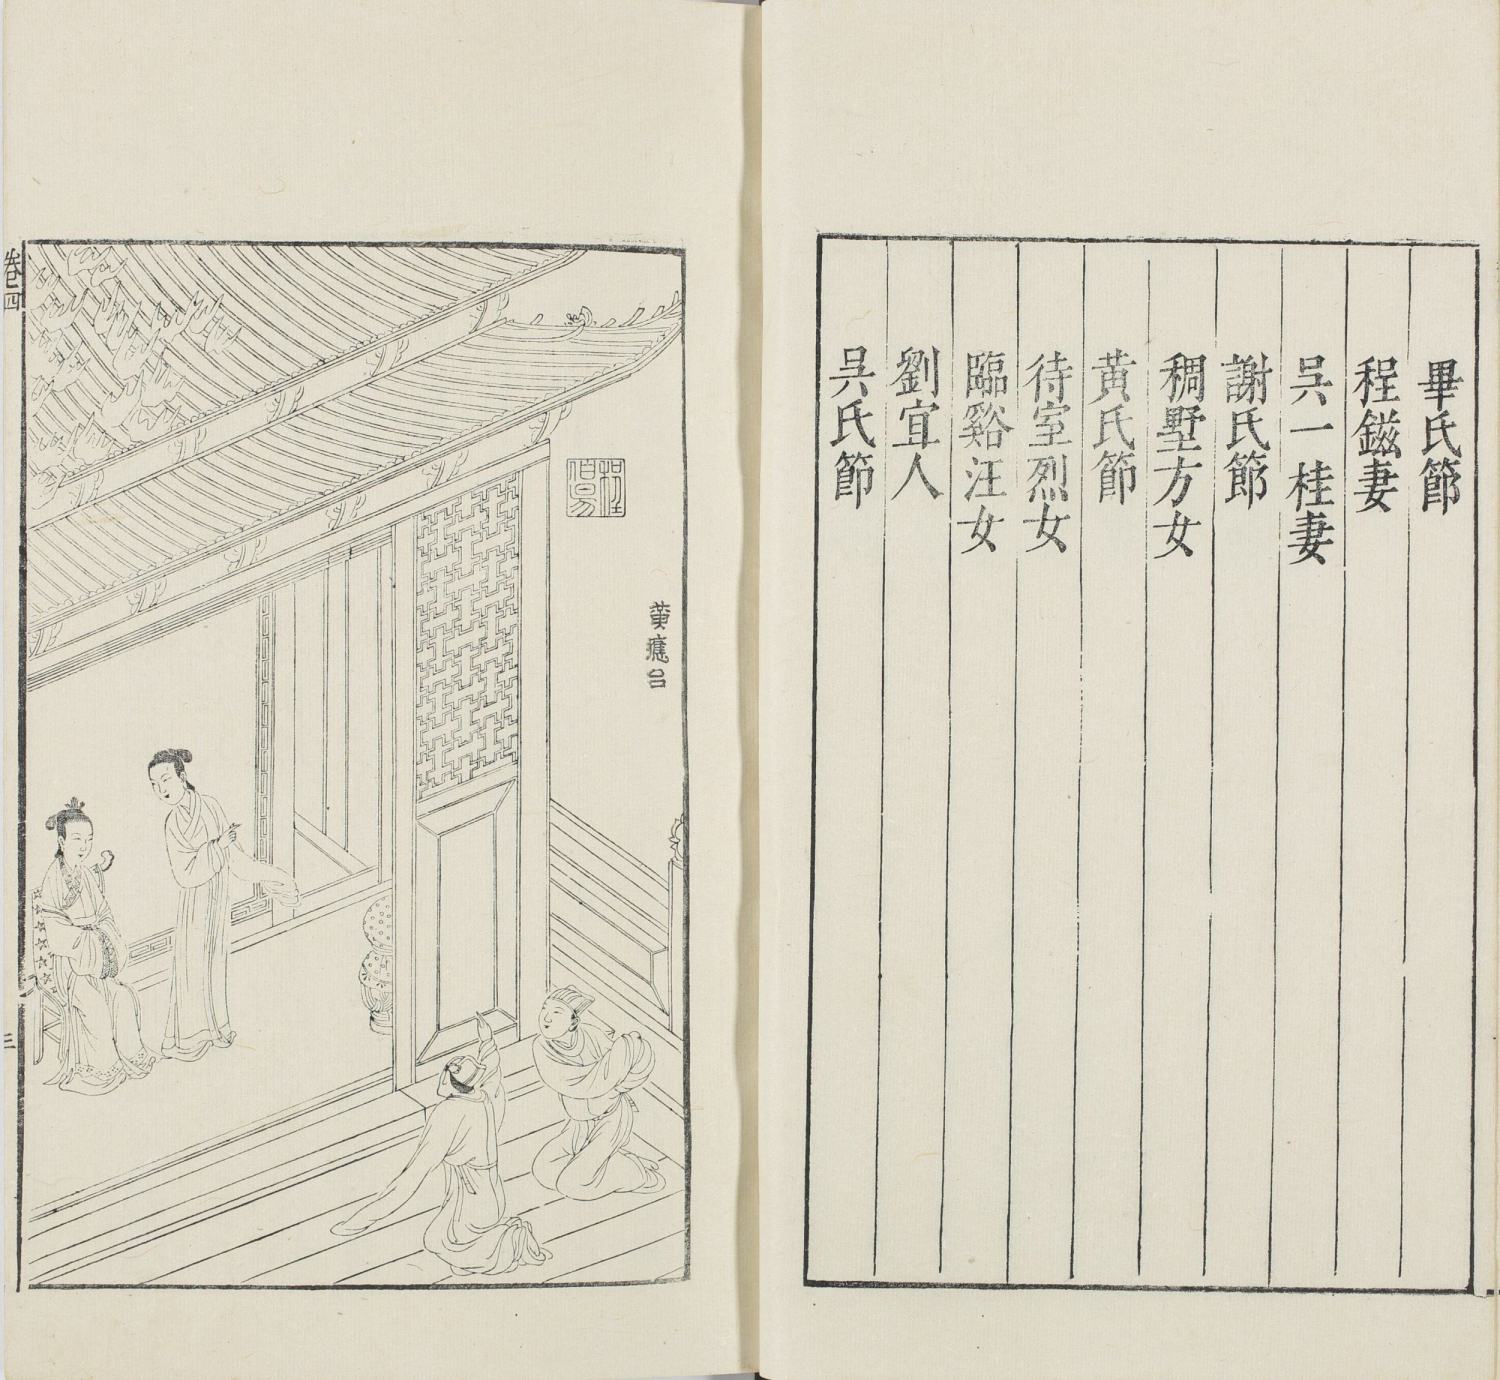 畢氏節
程鎡妻
吳一桂妻
謝氏節
稠墅方女
黃氏節
待室烈女
臨谿汪女
劉宜人
吳氏節
黃應
卷四
三